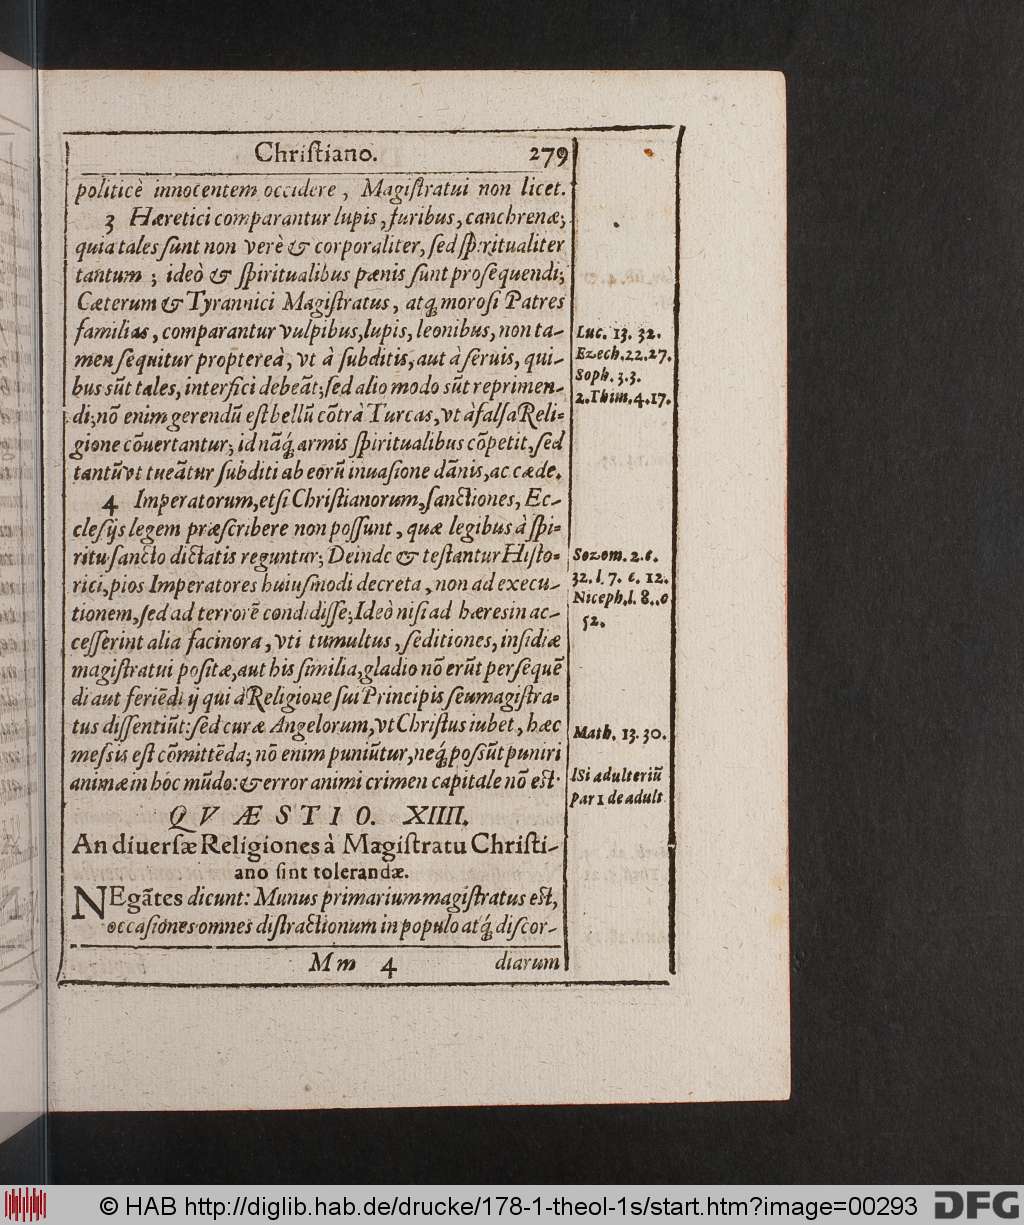 Chriſtiano. 279
politicè innocentem occidere, Magiſtratui non licet.
3 Hæretici comparantur lupis, furibus, canchrenæ;
quia tales ſunt non verè & corporaliter, ſed ſpiritualiter
tantum; ideò & ſpiritualibus pænis ſunt proſequendi;
Cæterum & Tyrannici Magiſtratus, atq́ moroſi Patres
familias, comparantur vulpibus, lupis, leonibus, non ta-
men ſequitur propterea, vt à ſubditis, aut à ſeruis, qui-
bus sũt tales, interfici debeãt; ſed alio modo sũt reprimen-
di; nõ enim gerendũ eſt bellũ cõtrà Turcas, vt à falſa Reli-
gione cõuertantur; id nãq́ armis ſpiritualibus cõpetit, ſed
tantũ vt tueãtur ſubditi ab eorũ inuaſione dãnis, ac cæde.
4 Imperatorum, etſi Chriſtianorum, ſanctiones, Ec-
cleſijs legem præſcribere non poſſunt, quæ legibus à ſpi-
ritu ſancto dictatis reguntur; Deinde & teſtantur Hiſto-
rici, pios Imperatores huiuſmodi decreta, non ad execu-
tionem, ſed ad terrorẽ condidiſſe; Ideò niſi ad hæresin ac-
ceſſerint alia facinora, vti tumultus, ſeditiones, inſidiæ
magiſtratui poſitæ, aut his ſimilia, gladio nõ erũt perſequẽ
di aut feriẽdi ij qui à Religioue ſui Principis ſeu magiſtra-
tus diſſentiũt: ſed curæ Angelorum, vt Chriſtus iubet, hæc
meſsis eſt cõmittẽda; nõ enim puniũtur, neq́ poſsũt puniri
animæ in hoc mũdo: & error animi crimen capitale nõ eſt.
QVÆSTIO. XIIII.
An diuerſæ Religiones à Magiſtratu Chriſti-
ano ſint tolerandæ.
NEgãtes dicunt: Munus primarium magiſtratus eſt,
occaſiones omnes diſtractionum in populo atq́ diſcor-
Mm 4 diarum
Luc. 13. 32.
Ezech. 22. 27.
Soph. 3. 3.
2. Thim. 4. 17.
Sozom. 2. c.
32. l. 7. c. 12.
Niceph. l. 8. c
52.
Math. 13. 30.
lSi adulteriũ
par 1 de adult
© HAB http://diglib.hab.de/drucke/178-1-theol-1s/start.htm?image=00293 DFG